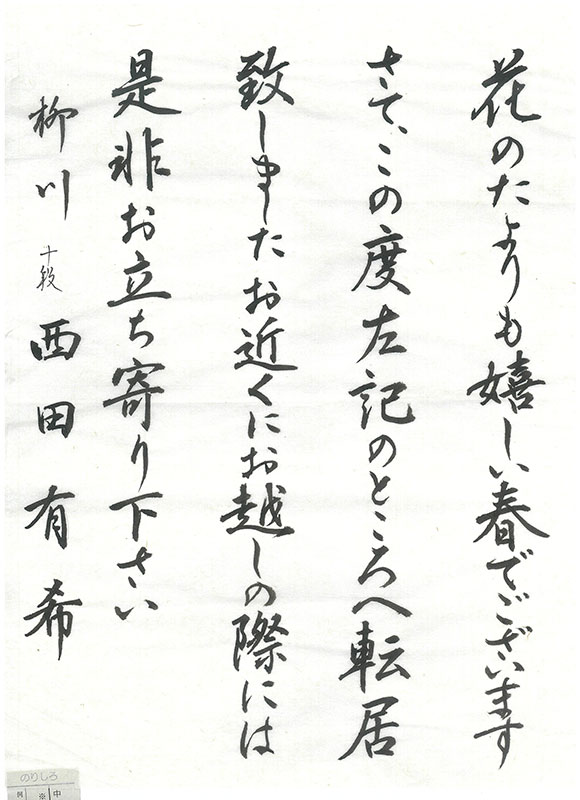 花のたよりも嬉しい春でございます
さて、この度左記のところへ転居
致しましたお近くにお越しの際には
是非お立ち寄り下さい
柳川 十段 西田有希
のりしろ
※ 中